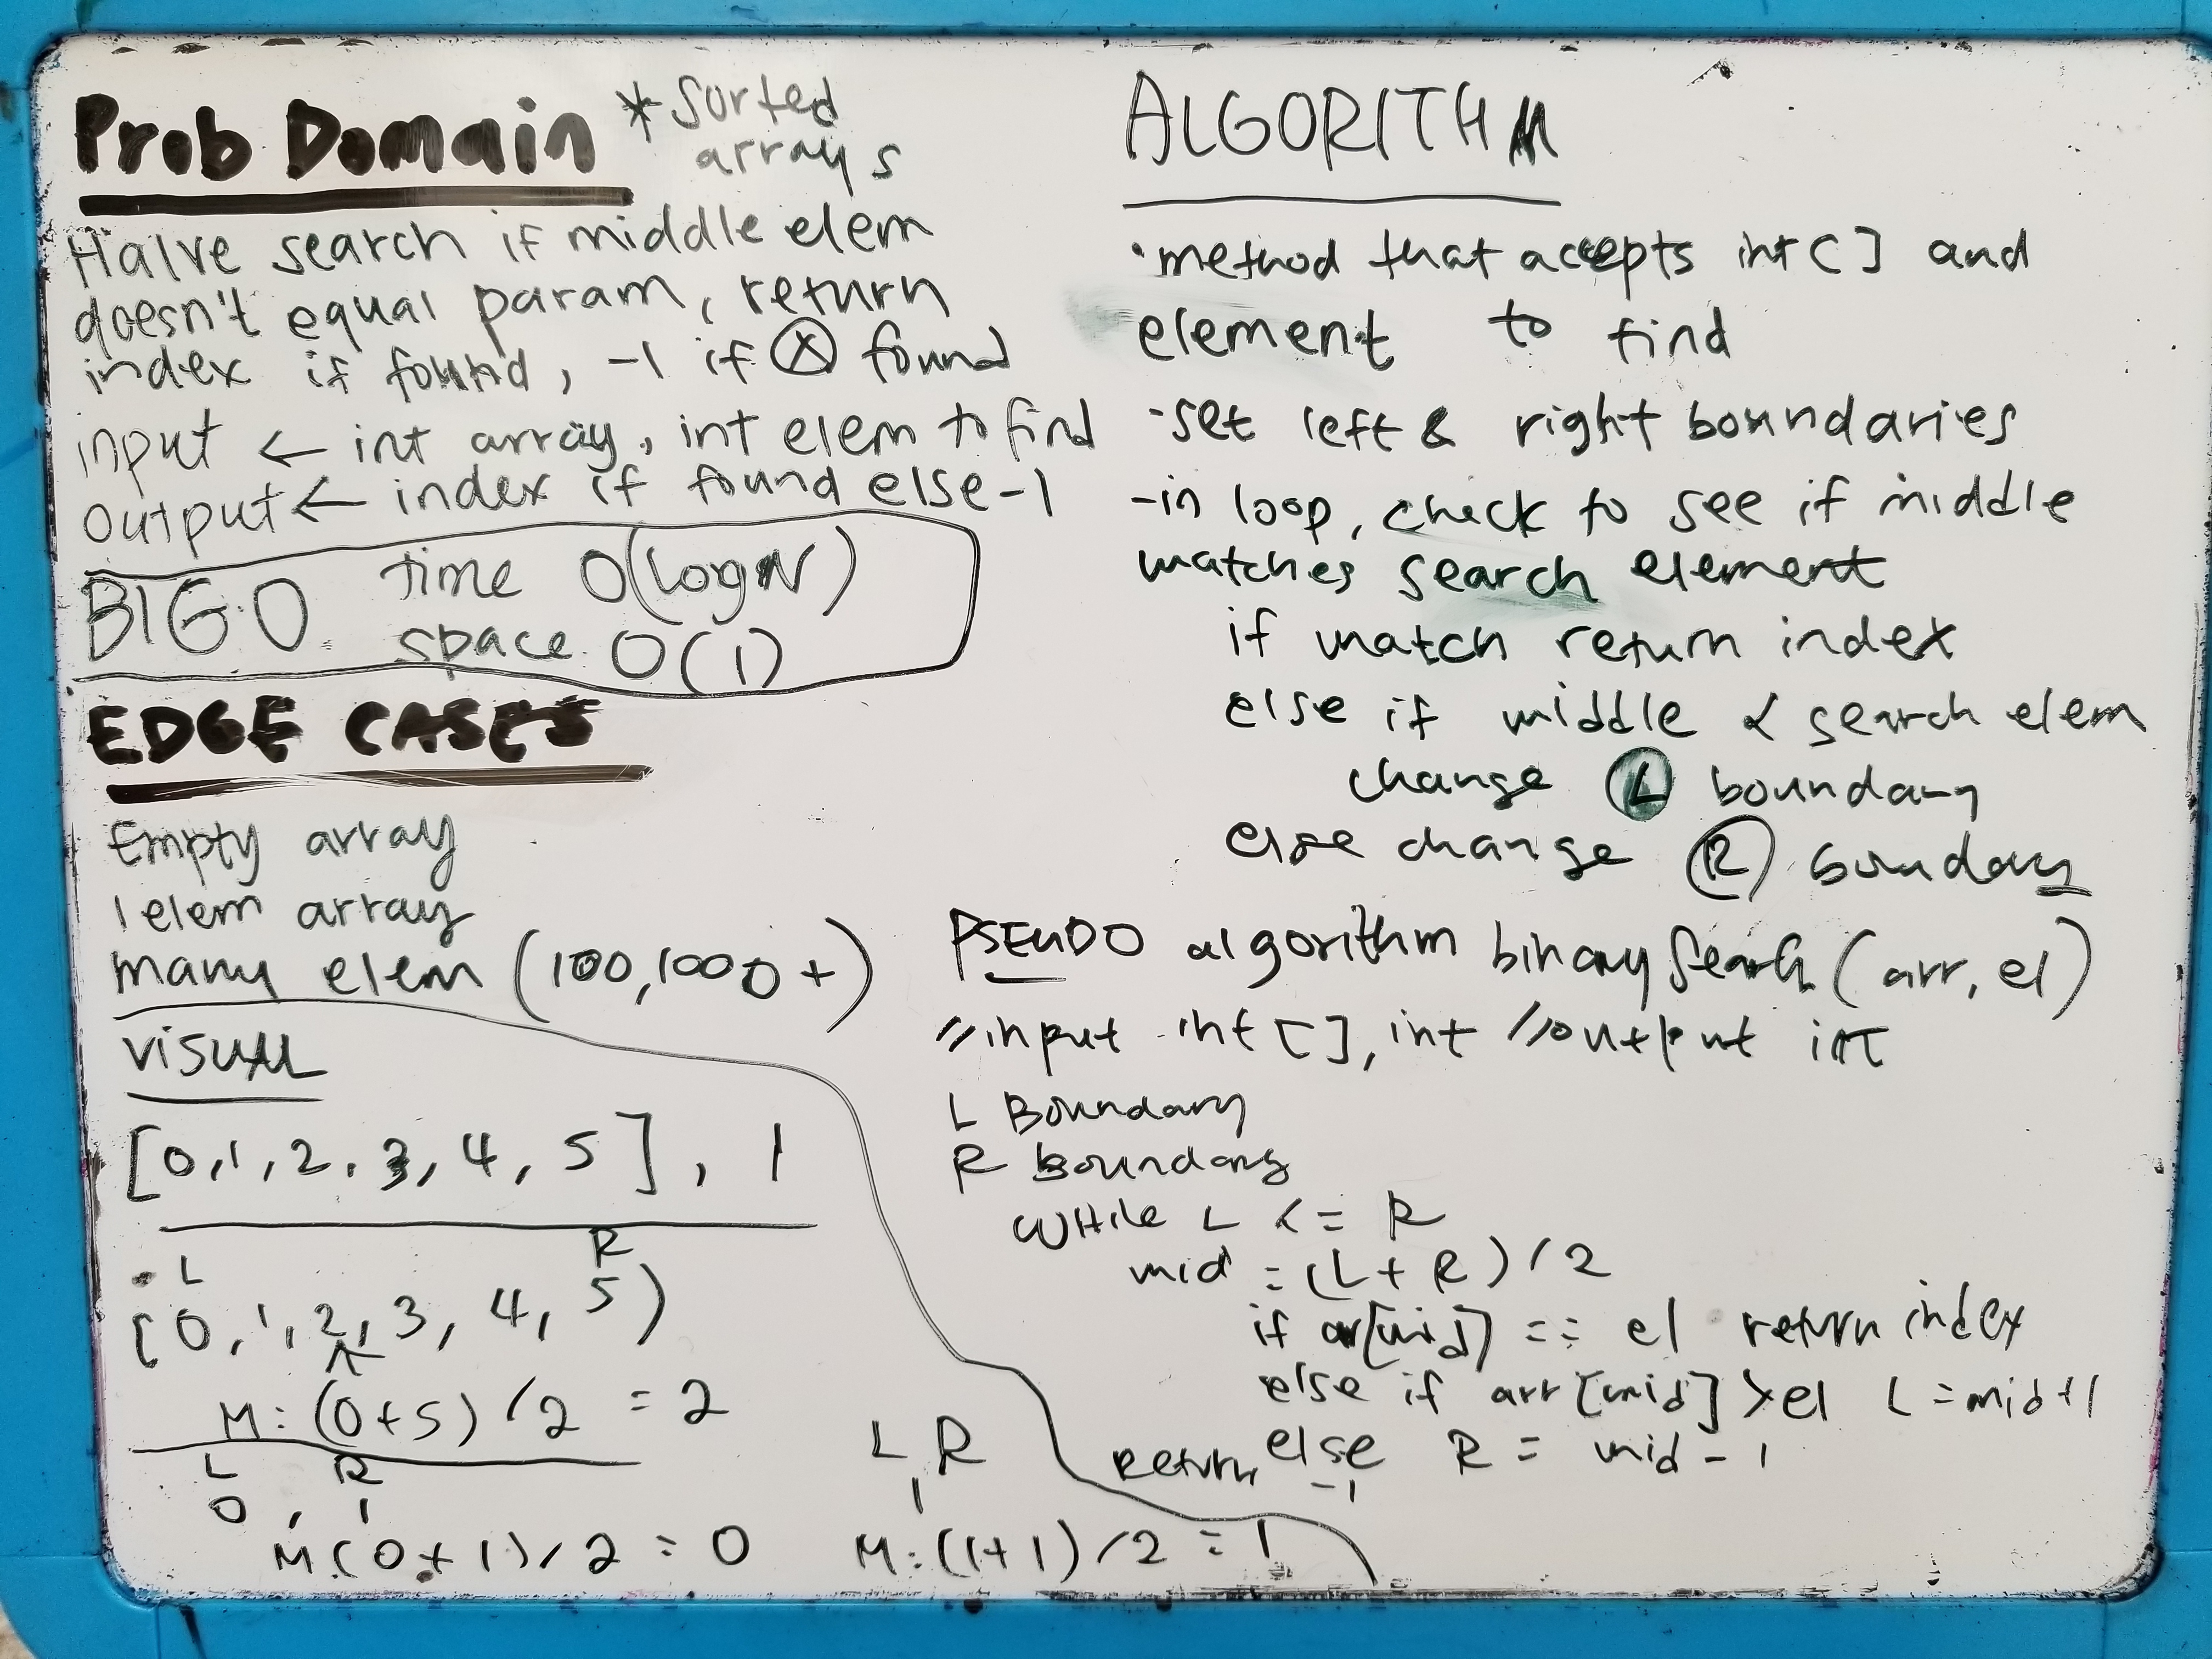 Prob Domain * Sorted
arrays
Halve search if middle elem
doesn't equal param, return
index if found, -1 if ⓧ found
input ← int array, int elem to find
output ← index if found else -1
BIG O time O(logN)
space O(1)
EDGE CASES
Empty array
1 elem array
many elem (100,1000+)
VISUAL
[0,1,2,3,4,5], 1
L R
[0,1,2,3,4,5)
^
M: (0+5)/2 = 2
L R
0, 1
M(0+1)/2 = 0
L, R
1
M: (1+1)/2 = 1
ALGORITHM
·method that accepts int[] and
element to find
-set left & right boundaries
-in loop, check to see if middle
matches search element
if match return index
else if middle < search elem
change Ⓛ boundary
else change Ⓡ boundary
PSEUDO algorithm binarySearch(arr, el)
//input int[], int //output int
L Boundary
R Boundary
WHile L <= R
mid = (L+R)/2
if ar[mid] == el return index
else if arr[mid] > el L = mid+1
else R = mid-1
Return -1